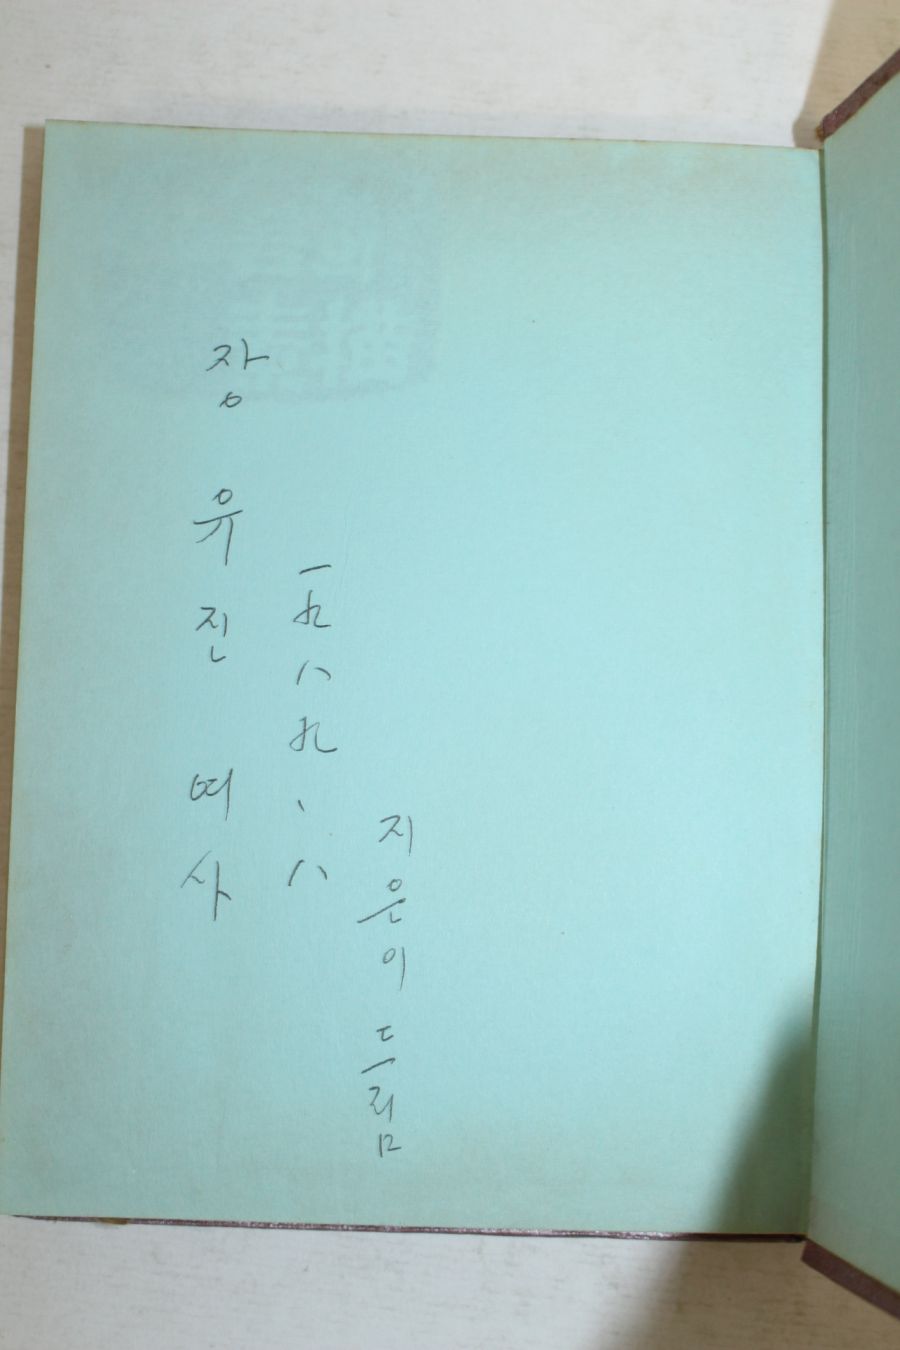 장 유진 여사
一九八九、八
지은이 드림